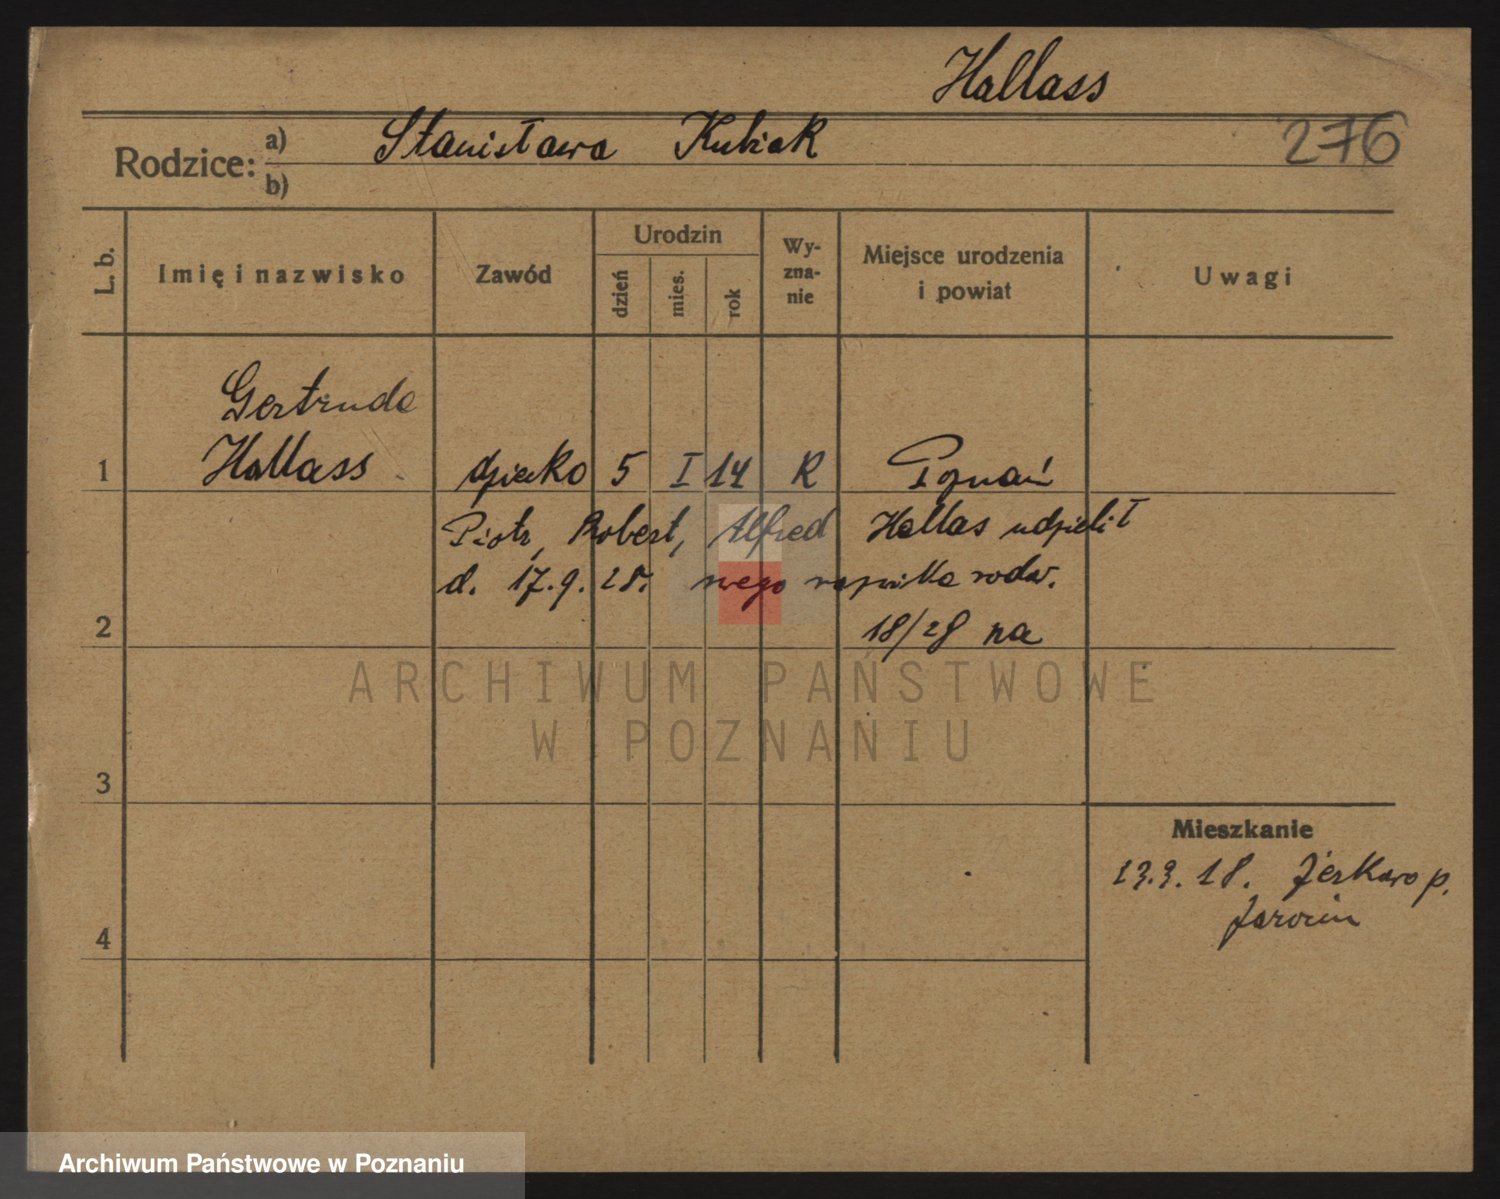 Hallass
276
Rodzice: a) Stanisława Kubiak
b)
L. b.
Imię i nazwisko
Zawód
Urodzin
dzień
mies.
rok
Wy-
zna-
nie
Miejsce urodzenia
i powiat
Uwagi
Gertruda
1 Hallass dziecko 5 I 14 R Poznań
Piotr, Robert, Alfred Hallas udzielił
d. 17.9.28. swego nazwiska rodow.
2 18/28 na
ARCHIWUM PAŃSTWOWE
W POZNANIU
3
Mieszkanie
23.3.18. Żerkowo p.
Jarocin
4
Archiwum Państwowe w Poznaniu